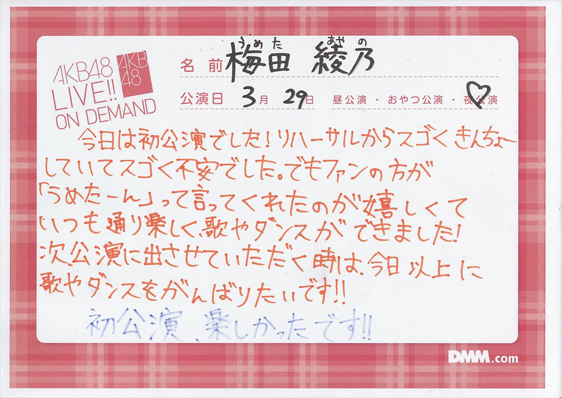 AKB48
LIVE!!
ON DEMAND
AKB
48
名前 梅田 綾乃
うめた あやの
公演日 3月 29日 昼公演・おやつ公演・夜公演
今日は初公演でした!リハーサルからスゴくきんちょー
していてスゴく不安でした。でもファンの方が
「うめたーん」って言ってくれたのが嬉しくて
いつも通り楽しく、歌やダンスができました!
次公演に出させていただく時は、今日以上に
歌やダンスをがんばりたいです!!
初公演、楽しかったです!!
DMM.com